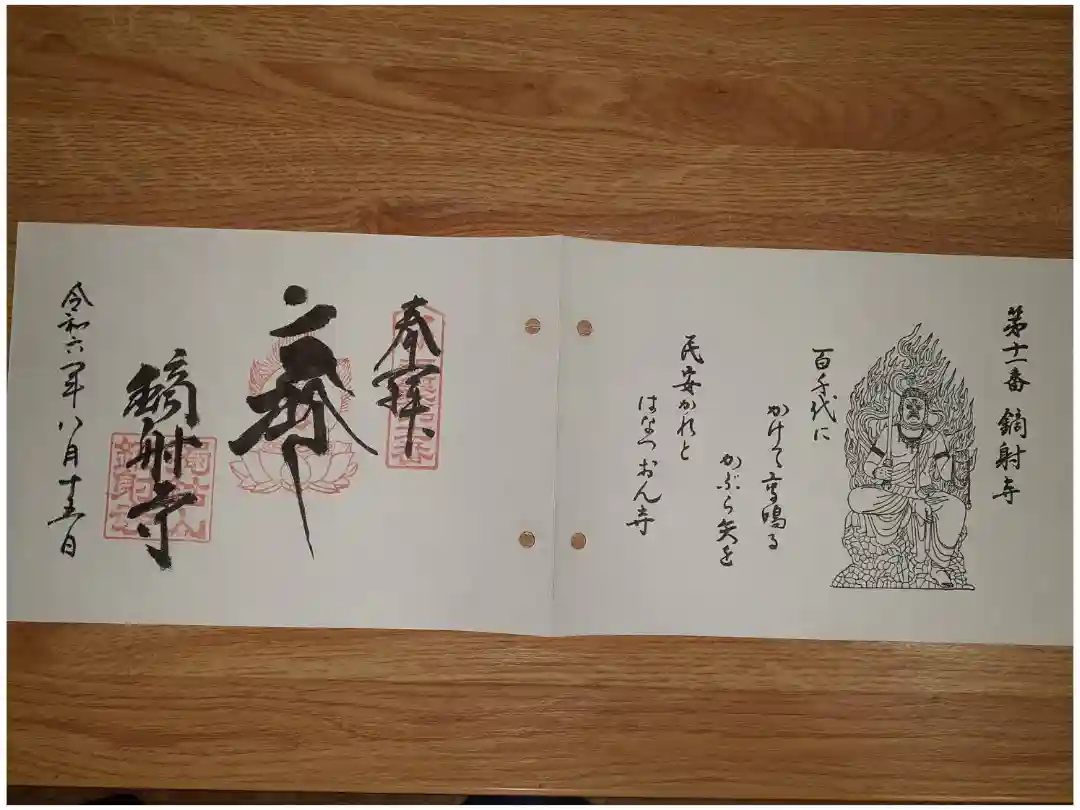 第十一番 鏑射寺
百千代に
かけて高鳴る
かぶら矢を
民安かれと
はなつおん寺
奉拝
鏑射寺
令和六年八月十五日